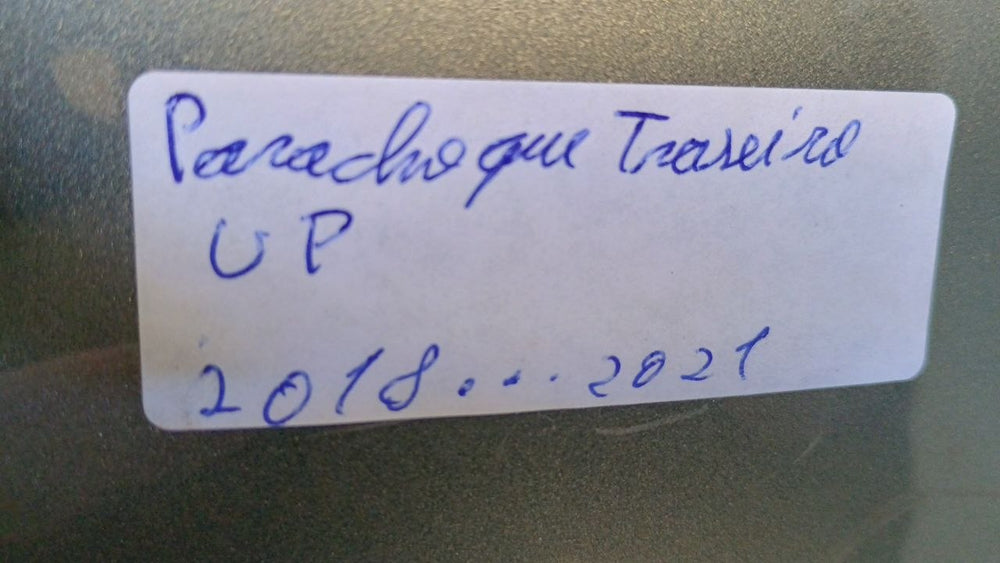 Parachoque Traseiro
UP
2018...2021